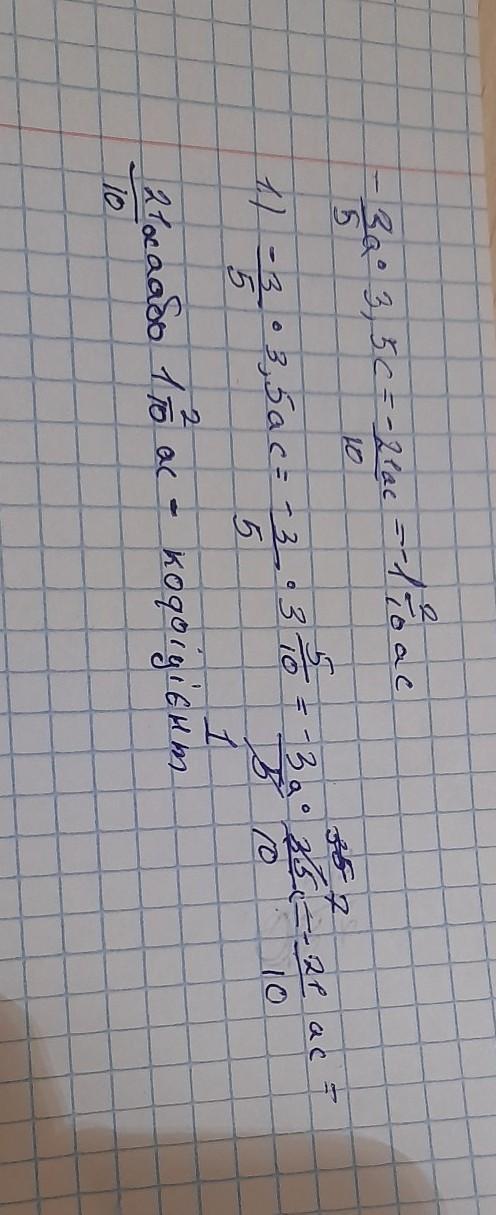 -3/5 a · 3,5c = -21ac/10 = -1 2/10 ac
1) -3/5 · 3,5ac = -3/5 · 3 5/10 = -3a/5 1 · 35c/10 7 = -21/10 ac =
21/10 або 1 2/10 ac - кофіцієнт